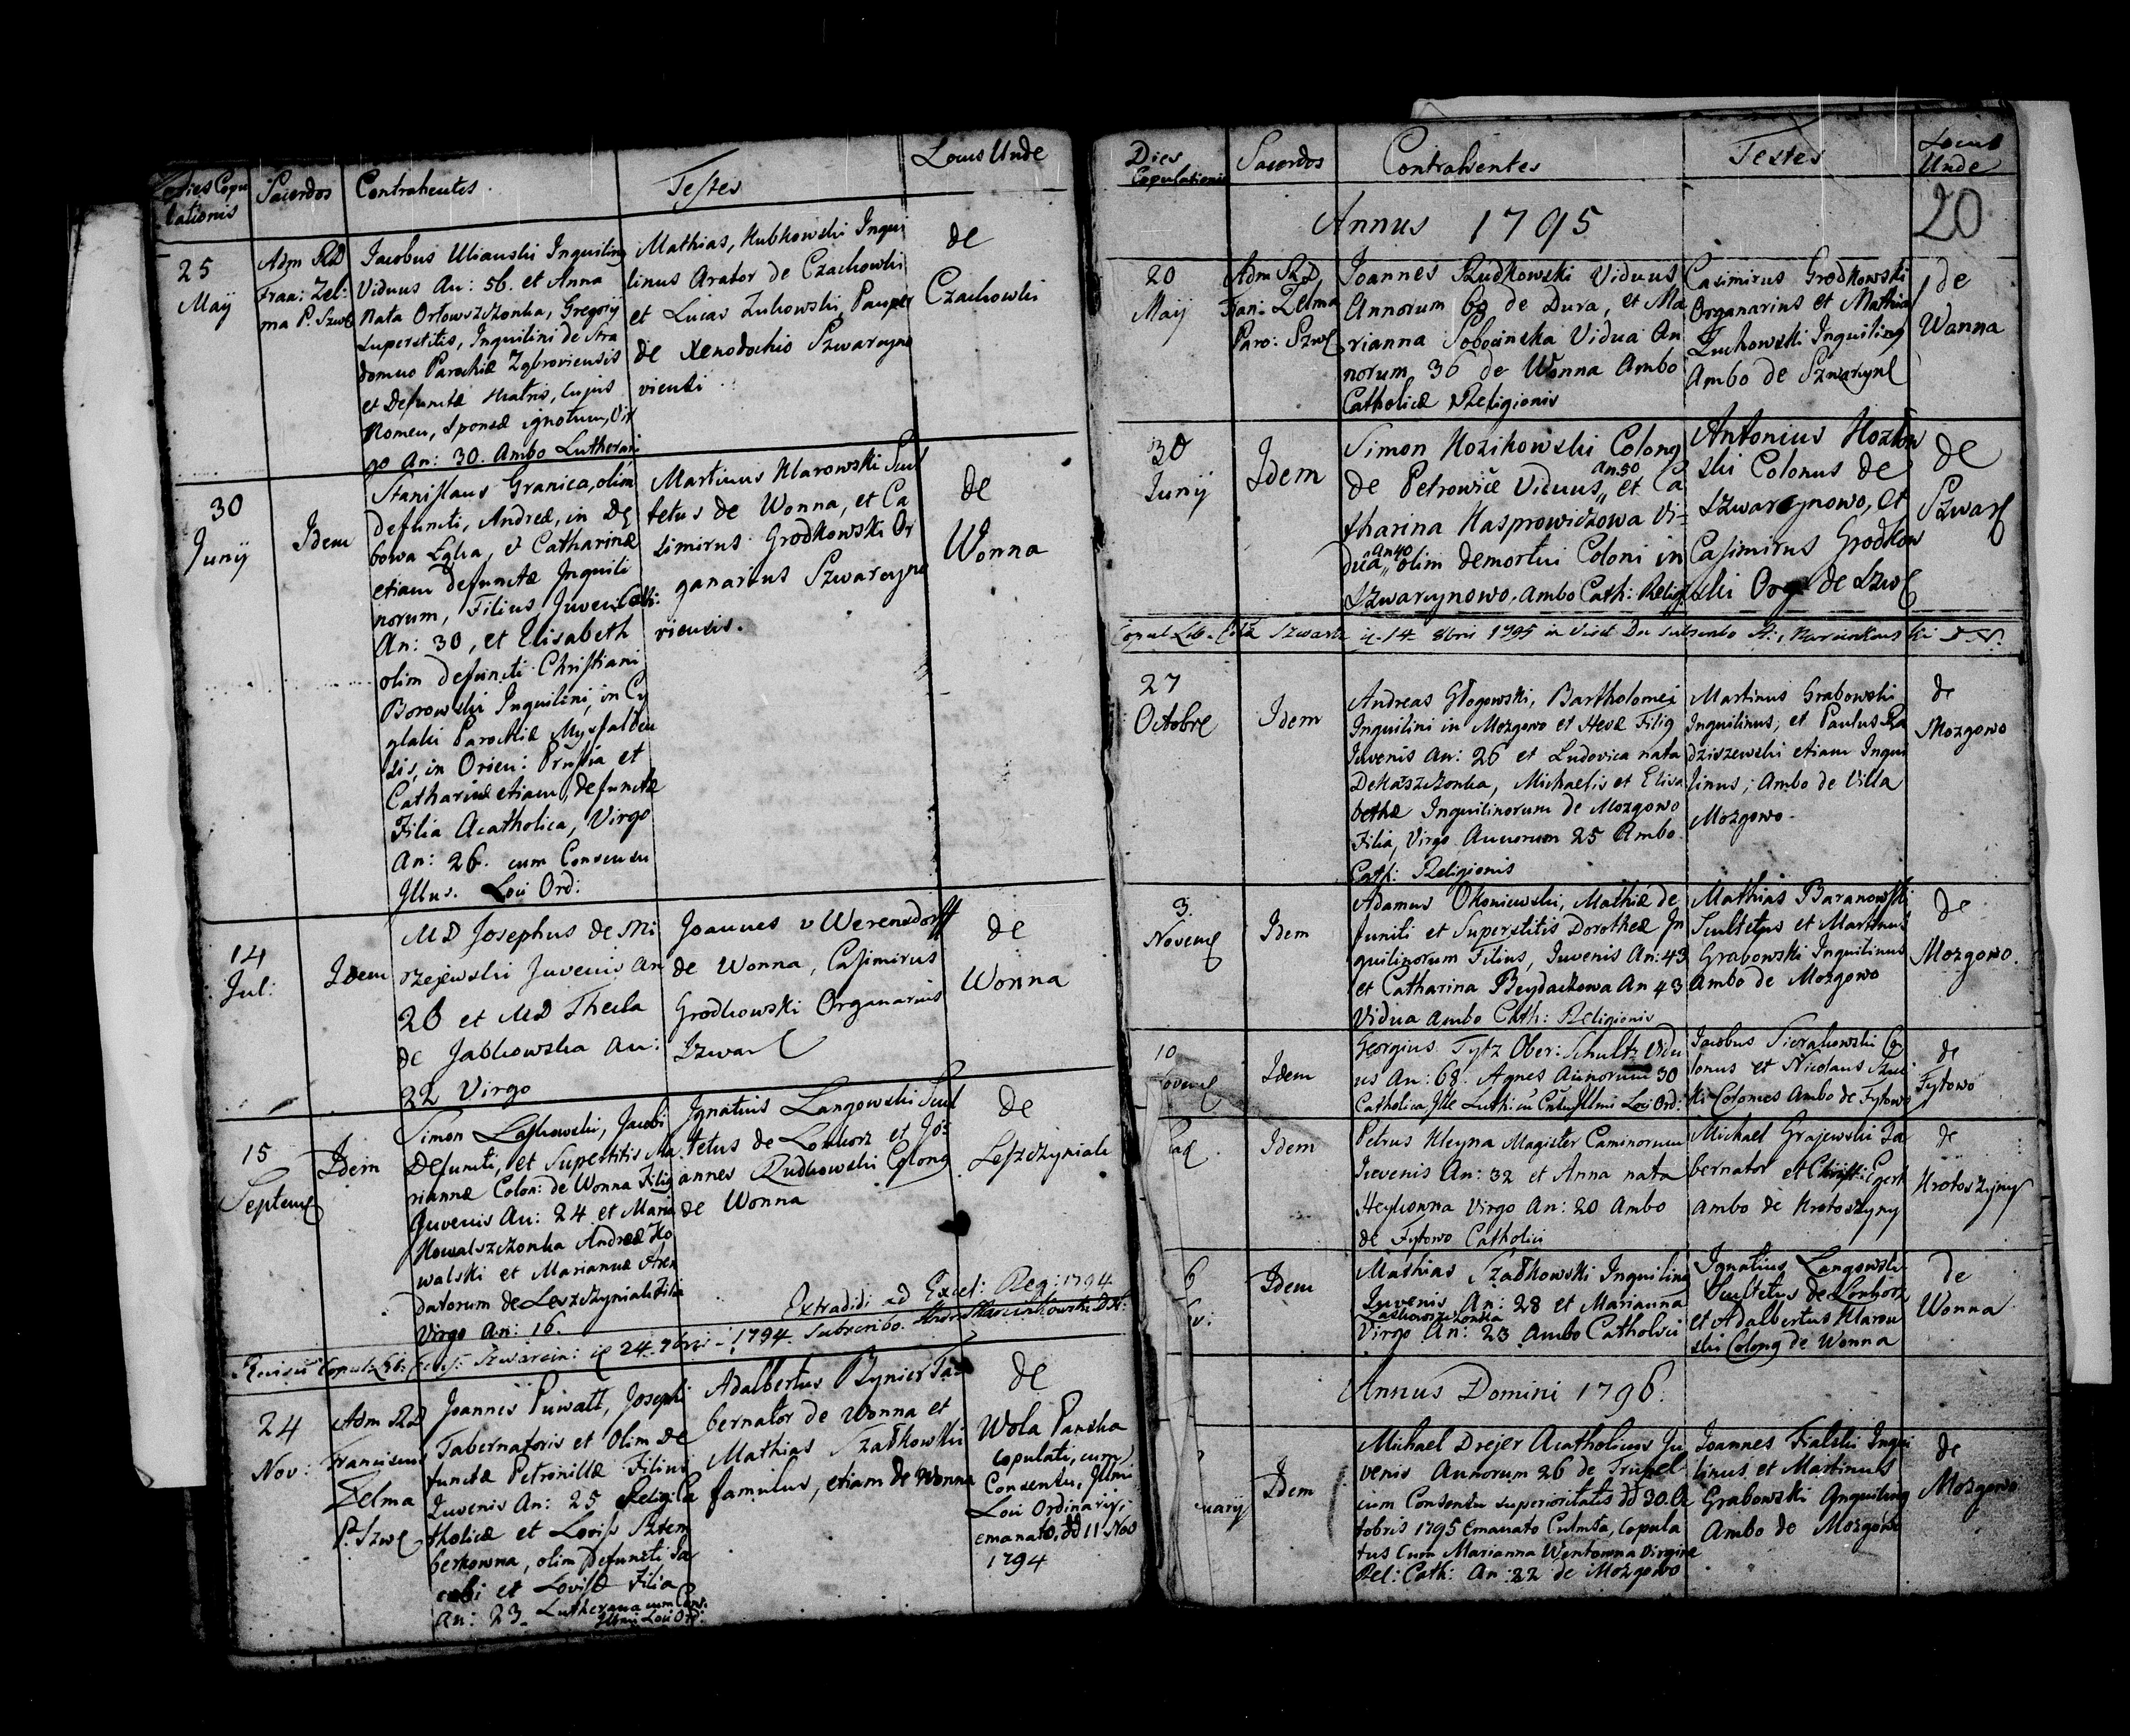 Dies Copu
lationis
Sacerdos
Contrahentes
Testes
Locus Unde
25
Maÿ
Adm RD
Fran: Zel:
ma P. Szw
Jacobus Ulianski Inquilinus
Viduus An: 56. et Anna
Nata Orłowszczonka, Gregorij
superstitis, Inquilini de Stra
domno Parochiæ
et Defunctæ Matris, cujus
Nomen, Sponsæ ignotum, Vir
go An: 30. Ambo Lutherani
Mathias, Kubkowski Inqui
linus Arator de Czachowki
et Lucas Zukowski, Pauper
de Xenodochio Szwarcyno
viensi
de
Czachowki
30
Junÿ
Idem
Stanislaus Granica, olim
defuncti, Andreæ, in Dę
bowa Łąka, et Catharinæ
etiam defunctæ Inquili
norum, Filius, Juvenis
An: 30, et Elisabeth
olim defuncti Christiani
Borowski Inquilini, in Cy
glaki Parochiæ
sis, in Orien: Prusia et
Catharinæ etiam, defunctæ
Filia Acatholica, Virgo
An: 26. cum Consensu
Illus. Loci Ord:
Martinus Klarowski Scul
tetus de Wonna, et Ca
simirus Grodkowski Or
ganarius Szwarcyno
viensis.
de
Wonna
14
Jul:
Idem
MD Josephus de Mi
rzejewski Juvenis An
26 et MD Thecla
de Jabkowska An:
22 Virgo
Joannes v Werensdorff
de Wonna, Casimirus
Grodkowski Organarius
Szwar
de
Wonna
15
Septem
Idem
Simon Laskowski, Jacobi
Defuncti, et Superstitis Ma
riannæ Colon: de Wonna Filius
Juvenis An: 24 et Maria
Kowalszczonka Andreæ Ko
walski et Mariannæ Aren
datorum de Leszczyniak Filia
Virgo An: 16.
Ignatius Langowski Scul
tetus de Lonkorz et Jo:
annes Rudkowski Colonus
de Wonna
de
Leszczyniak
Extradidi ad Excel: Reg: 1794
Revisus Copul: Lib: Szwarcin: 24 7bris 1794. Subscribo.
24
Nov:
Adm RD
Franciscus
Zelma
P: Szw
Joannes Priwatt, Josephi
Tabernatoris et Olim De
functæ Petronillæ Filius
Juvenis An: 25 Relig: Ca
tholicæ et Lovisa Sztem
berkowna, olim Defuncti Ja
cobi et Lovisæ Filia
An: 23. Lutherana cum Cons:
Illmi Loci Ord:
Adalbertus Rynier Ta:
bernator de Wonna et
Mathias Szatkowski
famulus, etiam de Wonna
de
Wola Panska
copulati, cum
Consensu, Illmi
Loci Ordinarij,
emanato, dd 11 Nov
1794
Dies
Copulationis
Sacerdos
Contrahentes
Testes
Locus
Unde
Annus 1795
20
20
Maij
Adm RD
Fran: Zelma
Paro: Szw
Joannes Rudkowski Viduus
Annorum 60 de Dura, et Ma
rianna Sobocinska Vidua An
norum 36 de Wonna Ambo
Catholicæ Religionis
Casimirus Grodkowski
Organarius et Mathias
Zuchowski Inquilinus
Ambo de Szwarcyn
de
Wanna
30
Junij
Idem
Simon Kozikowski Colonus
de Petrowice Viduus An: 50 et Ca
tharina Kasprowiczowa Vi=
dua An 40 olim demortui Coloni in
Szwarcynowo, Ambo Cath: Relig:
Antonius Kozłow
ski Colonus de
Szwarcynowo, et
Casimirus Grodkow
ski Org de Szw
de
Szwar
14 8bris 1795 in Visit
27
Octobre
Idem
Andreas Głogowski, Bartholomei
Inquilini in Mozgowo et Hevæ Filius
Juvenis An: 26 et Ludovica nata
Dekaszczonka, Michaelis et Elisa
bethæ Inquilinorum de Mozgowo
Filia, Virgo Annorum 25 Ambo
Cath: Religionis
Martinus Grabowski
Inquilinus, et Paulus Ra
dziszewski etiam Inqui
linus; Ambo de Villa
Mozgowo.
de
Mozgowo
3.
Novem
Idem
Adamus Okoniewski, Mathiæ de
functi et Superstitis Dorotheæ In
quilinorum Filius, Juvenis An: 43
et Catharina Beydaczowa An 43
Vidua Ambo Cath: Religionis
Mathias Baranowski
Scultetus et Martinus
Grabowski Inquilinus
Ambo de Mozgowo
de
Mozgowo.
10
Novem
Idem
Georgius Tytz Ober: Schultz Vidu
us An: 68. Agnes Annorum 30
Catholica, Ille Luth: cu Illmi Loci Ord:
Jacobus Sierakowski Co
lonus et Nicolaus
Colonus Ambo de Fytowo
de
Fytowo
Idem
Petrus Kleyna Magister Caminorum
Juvenis An: 32 et Anna nata
Heykowna Virgo An: 20 Ambo
de Fytowo Catholici
Michael Grajewski Ta
bernator et Christ: Egert
Ambo de Krotoszyny
de
Krotoszyny
6
Idem
Mathias Szatkowski Inquilinus
Juvenis An: 28 et Marianna
Laskowszczonka
Virgo An: 23 Ambo Catholici
Ignatius Langowski
Scultetus de Lonkorz
et Adalbertus Klarow
ski Colonus de Wonna
de
Wonna
Annus Domini 1796.
uarij
Idem
Michael Drejer Acatholicus Ju
venis Annorum 26 de Trupel
cum Consensu superioritatis dd 30. Oc
tobris 1795 Emanato Culmsa, Copula
tus Cum Marianna Wentowna Virgine
Rel: Cath: An 22 de Mozgowo
Joannes Fialski Inqui
linus et Martinus
Grabowski Inquilinus
Ambo de Mozgowo
de
Mozgowo